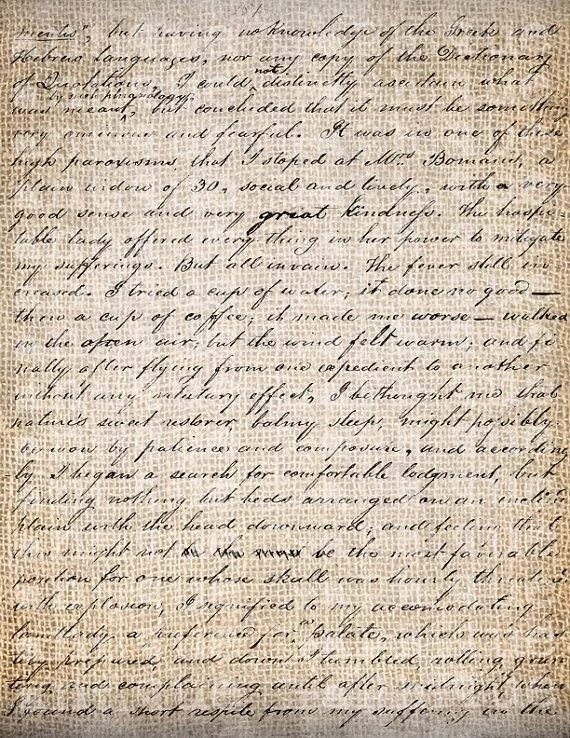 mentis", but having no knowledge of the Greek and
Hebrew Languages, nor any copy of the Dictionary
of Quotations, I could not distinctly ascertain what
was meant by such phrasology, but concluded that it must be something
very ominous and fearful. It was in one of these
high paroxisms that I stoped at Mrs Bomans, a
plain widow of 30, social and lovely, with a very
good sense and very great kindness. The hospi-
table lady offered every thing in her power to mitigate
my sufferings. But all in vain. The fever still in
creased. I tried a cup of water; it done no good —
then a cup of coffee; it made me worse — walked
in the open air; but the wind felt warm; and fi
nally after flying from one expedient to another
without any salutary effect, I bethought me that
nature's sweet restorer, balmy sleep, might possibly
be won by patience and composure, and according
ly I began a search for comfortable lodgment, but
finding nothing but beds arranged on an inclin'd
plain with the head downward; and feeling that
this might not be the most favorable
position for one whose skull was hourly threaten'd
with explosion, I signified to my accomodating
landlady a preference for a palate, which was has
tily prepared and down I tumbled, rolling, grun
ting, and complaining until after midnight, when
I found a short respite from my suffering in the